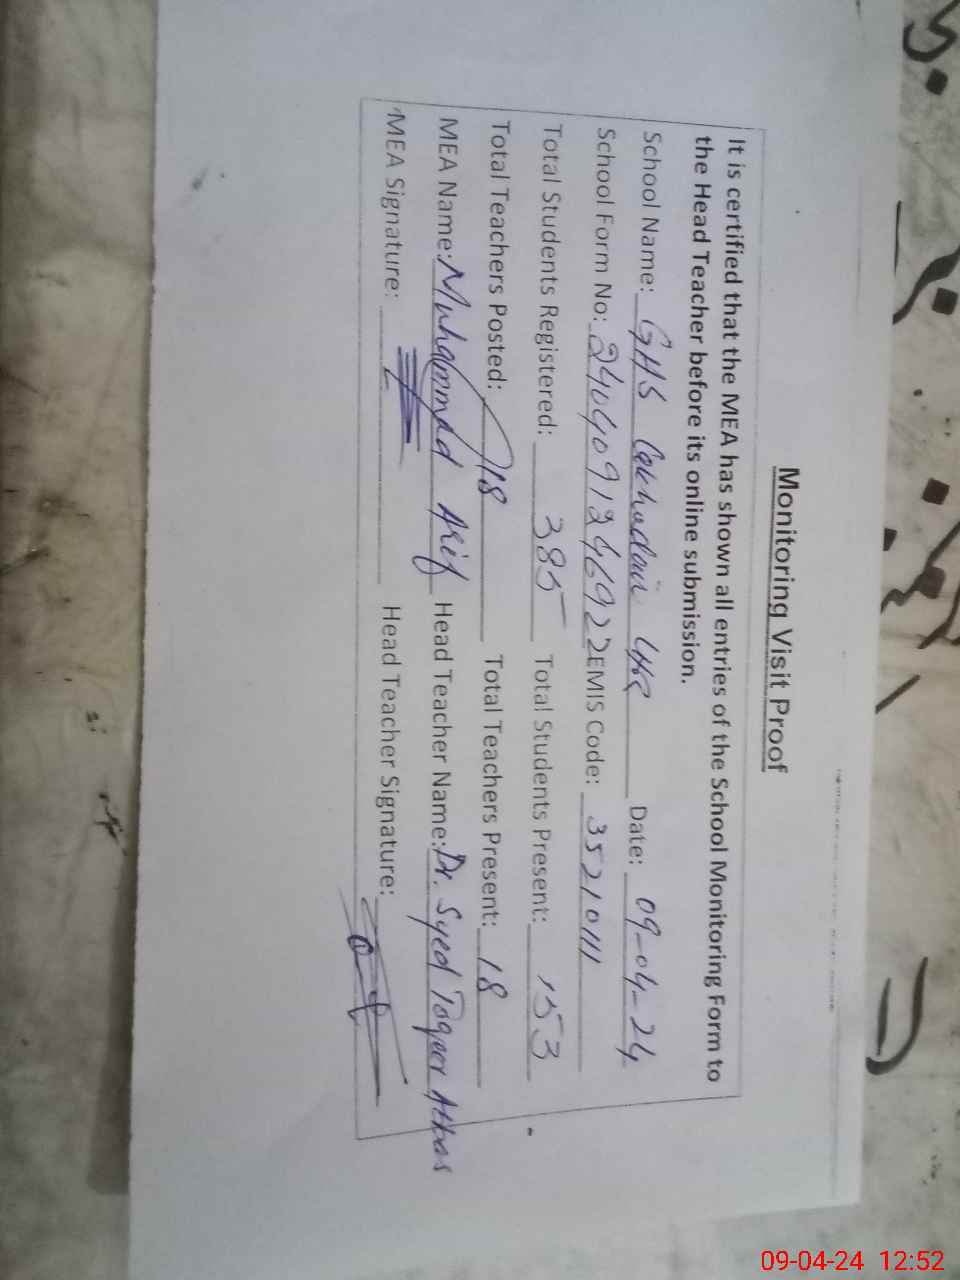 Monitoring Visit Proof
It is certified that the MEA has shown all entries of the School Monitoring Form to
the Head Teacher before its online submission.
School Name: GHS Lakhodair LHR Date: 09-04-24
School Form No: 2404091246922 EMIS Code: 35210111
Total Students Registered: 385 Total Students Present: 153
Total Teachers Posted: 18 Total Teachers Present: 18
MEA Name: Muhammad Arif Head Teacher Name: Dr. Syed Toqeer Abbas
MEA Signature: Head Teacher Signature:
09-04-24 12:52